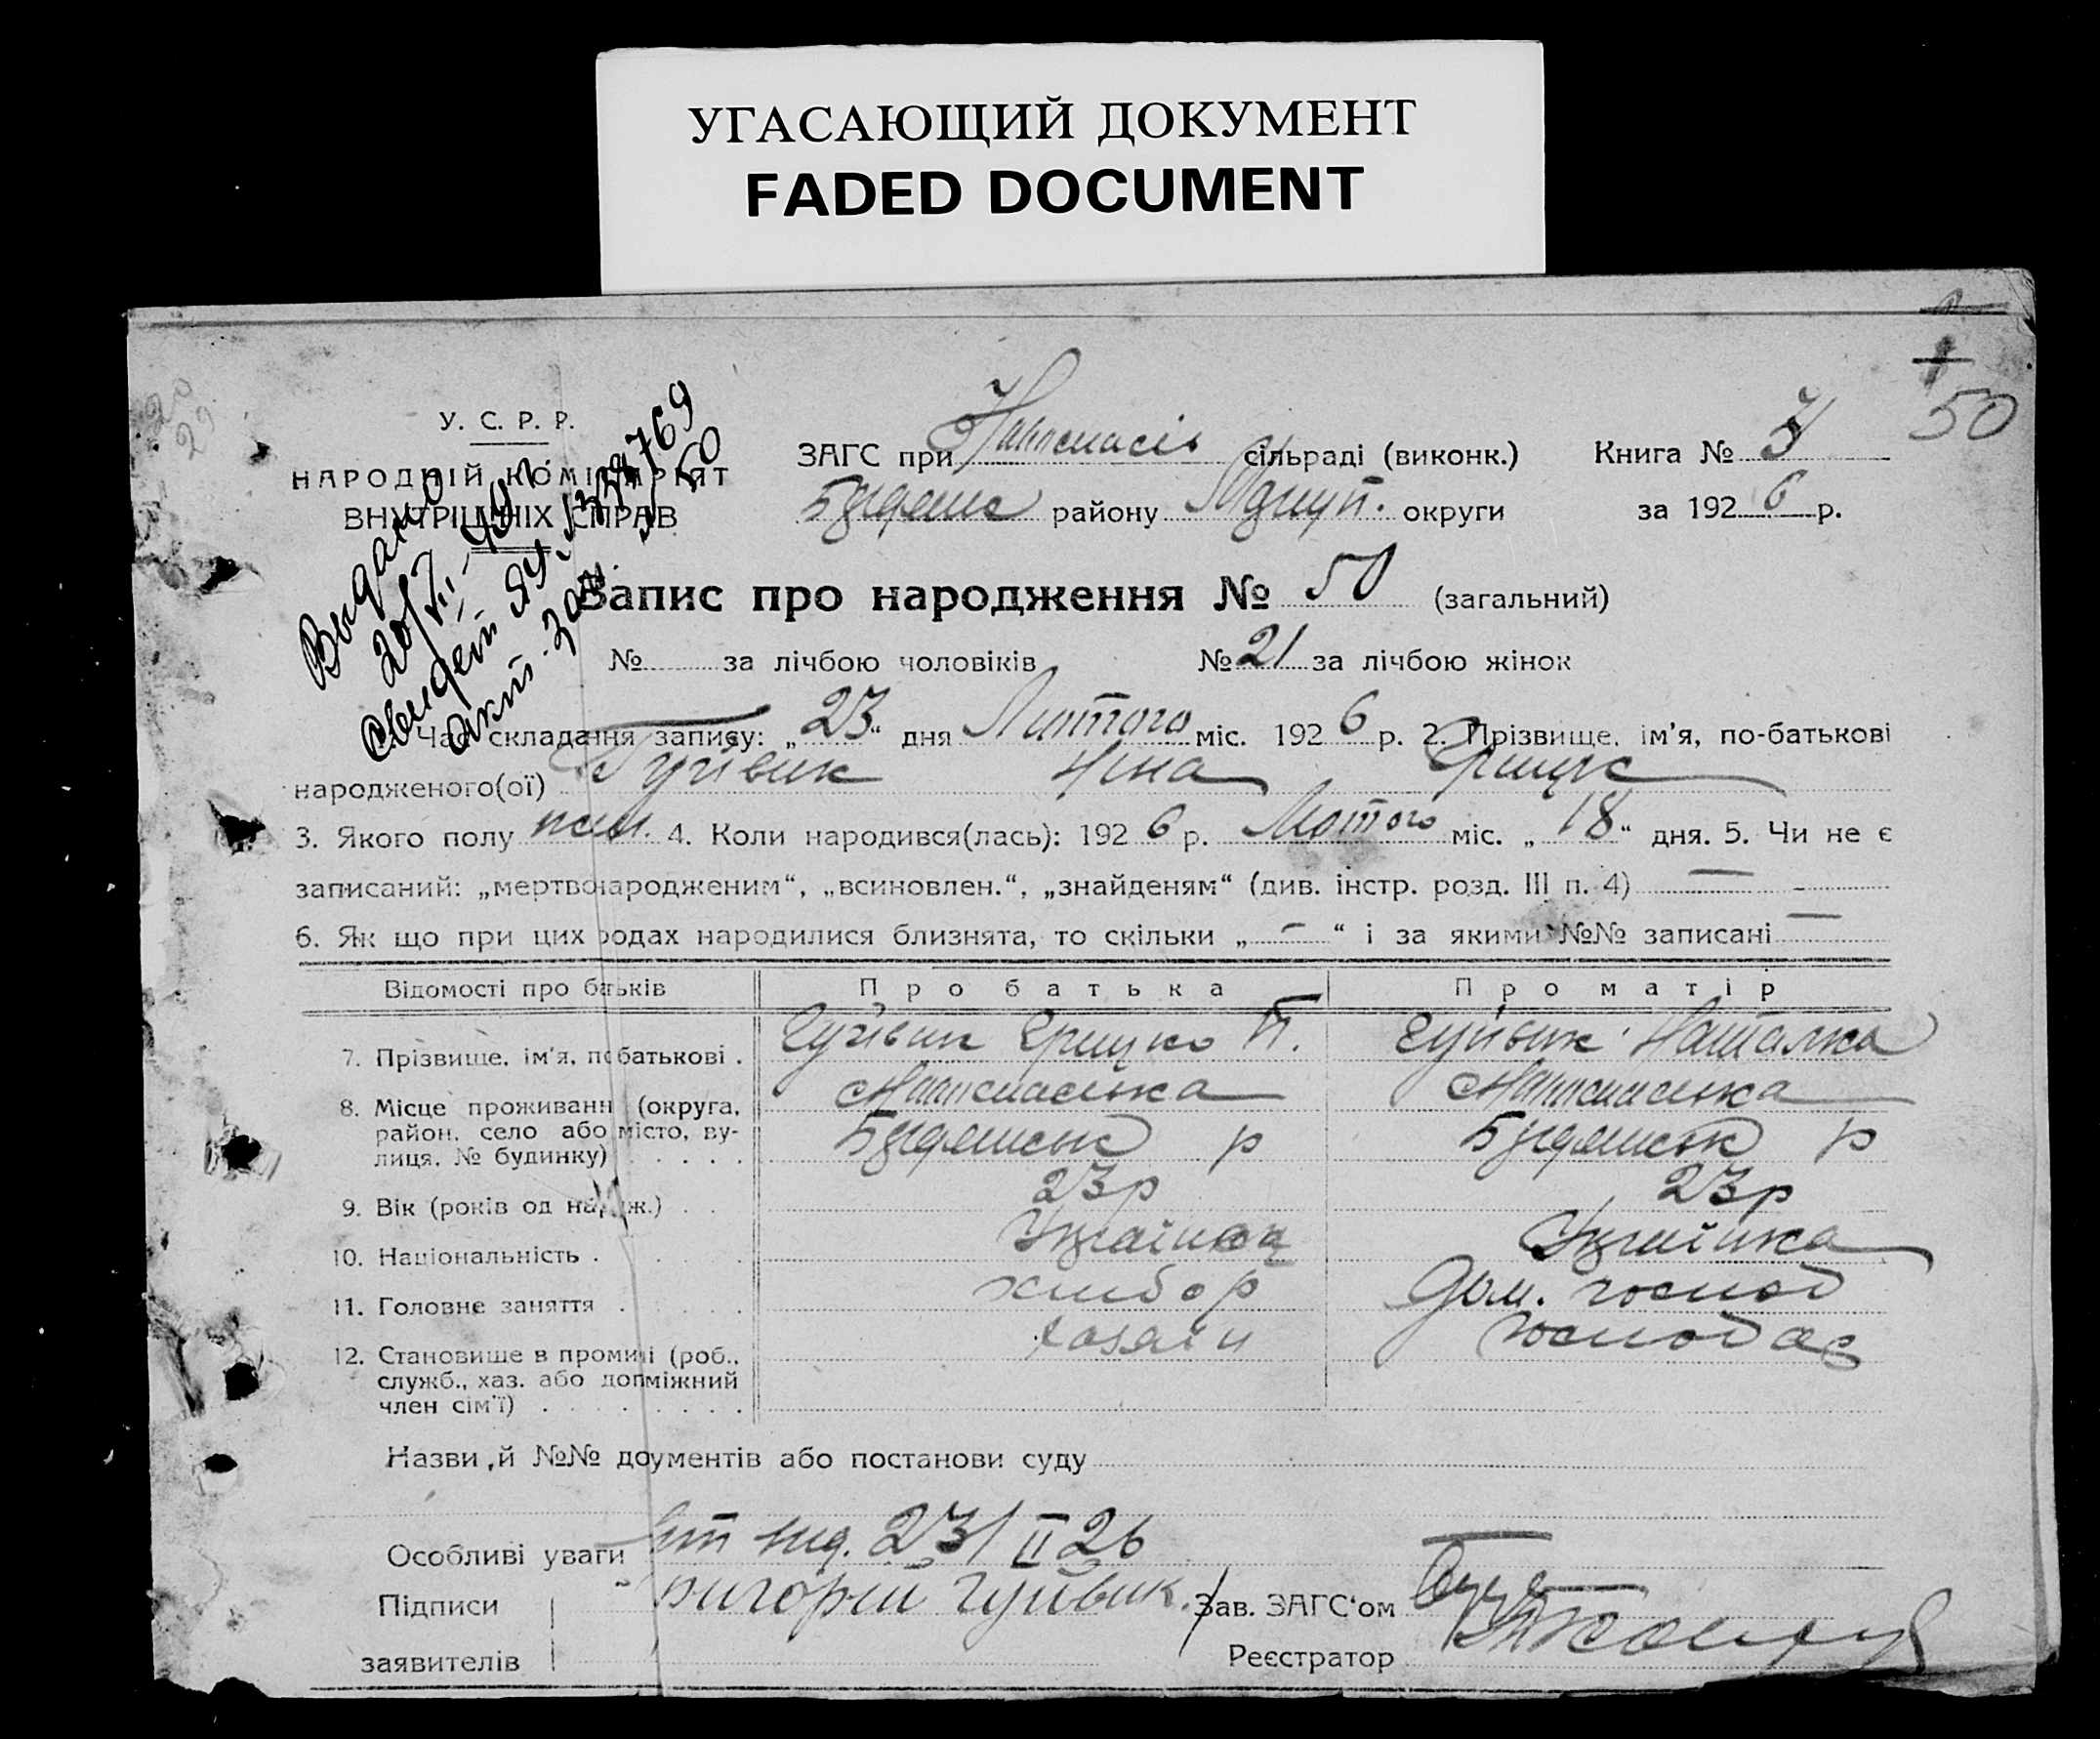 УГАСАЮЩИЙ ДОКУМЕНТ
FADED DOCUMENT
50
У. С. Р. Р.
НАРОДНІЙ КОМІСАРІЯТ
ВНУТРІШНІХ СПРАВ
ЗАГС при сільраді (виконк.) Книга №
району округи за 1926 р.
Выдано
Запис про народження № 50 (загальний)
№ за лічбою чоловіків № 21 за лічбою жінок
1. Час складання запису: „23“ дня Лютого міс. 1926 р. 2. Прізвище, ім'я, по-батькові
народженого(ої) Гуйвик Ніна Грицьк
3. Якого полу жін. 4. Коли народився(лась): 1926 р. Лютого міс. „18“ дня. 5. Чи не є
записаний: „мертвонародженим“, „всиновлен.“, „знайденям“ (див. інстр. розд. III п. 4) —
6. Як що при цих родах народилися близнята, то скільки „—“ і за якими №№ записані —
Відомості про батьків Про батька Про матір
7. Прізвище, ім'я, побатькові . Гуйвик Грицько П. Гуйвик Наталка
8. Місце проживанн (округа,
район, село або місто, ву-
лиця, № будинку) . . . . .
р р
9. Вік (років од нарож.) . . 23р 23р
10. Національність . . . . Українец Українка
11. Головне заняття . . . . хлибор дом. господ
12. Становише в промислі (роб.,
служб., хаз. або допоміжний
член сім'ї) . . . . . . . .
хозяін господар
Назви й №№ документів або постанови суду
Особливі уваги 23/II 26
Підписи Григорій Гуйвик. Зав. ЗАГС'ом
заявителів Реєстратор